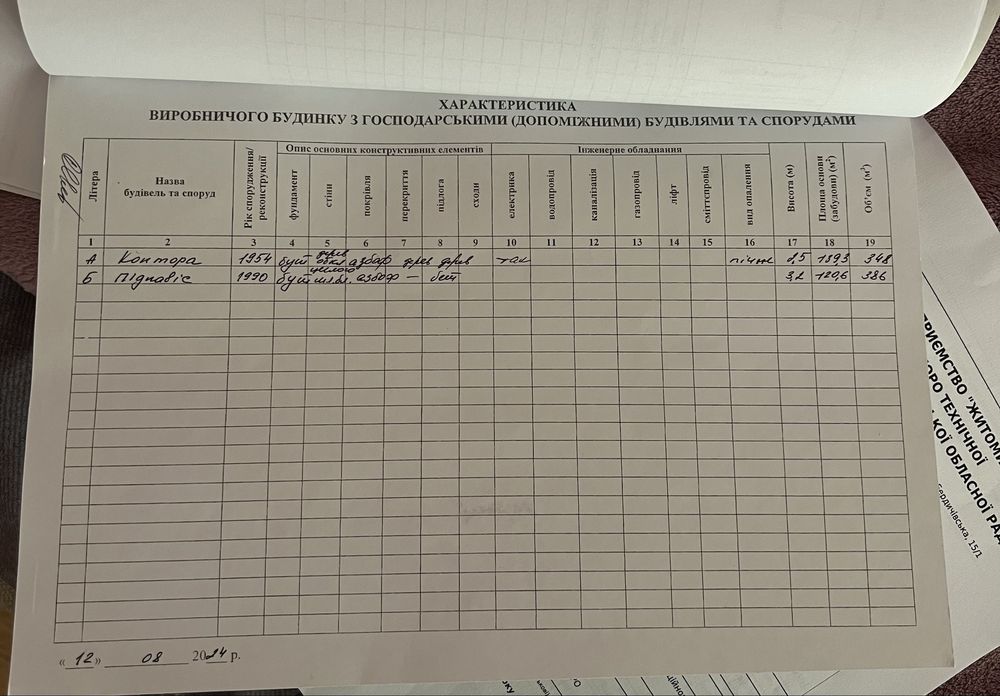 ХАРАКТЕРИСТИКА
ВИРОБНИЧОГО БУДИНКУ З ГОСПОДАРСЬКИМИ (ДОПОМІЖНИМИ) БУДІВЛЯМИ ТА СПОРУДАМИ
Літера
Назва будівель та споруд
Рік спорудження/реконструкції
Опис основних конструктивних елементів
фундамент
стіни
покрівля
перекриття
підлога
сходи
Інженерне обладнання
електрика
водопровід
каналізація
газопровід
ліфт
сміттєпровід
вид опалення
Висота (м)
Площа основи (забудови) (м²)
Об'єм (м³)
1 2 3 4 5 6 7 8 9 10 11 12 13 14 15 16 17 18 19
А Контора 1954 бут дерев обкл азбоф дерев дерев так пічне 2,5 139,3 348
Б Піднавіс 1990 бут азбоф — бет 3,2 120,6 386
«12» 08 2024 р.
ПРИЄМСТВО "ЖИТОМИ
ЮРО ТЕХНІЧНОЇ
КОЇ ОБЛАСНОЇ РАД
Бердичівська, 15/1